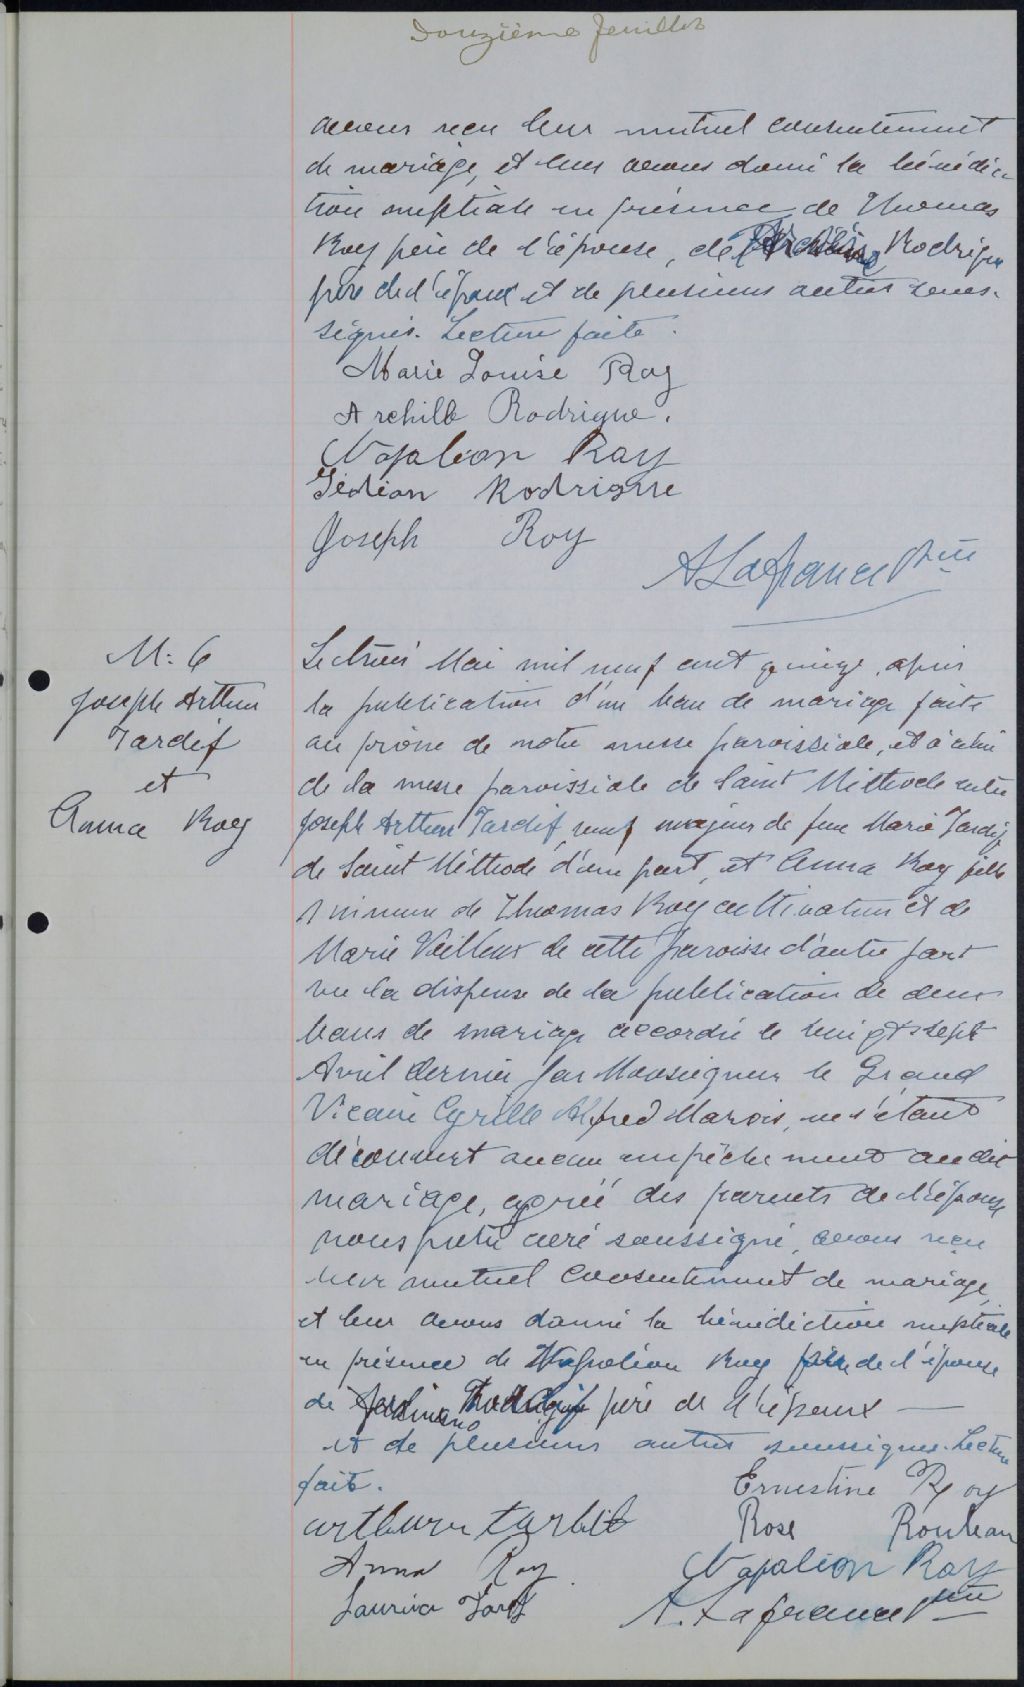 Douzième feuillet
avons reçu leur mutuel consentement
de mariage, et leur avons donné la bénédic-
tion nuptiale en présence de Thomas
Roy père de l'épouse, de Rodrigue
père de l'époux et de plusieurs autres sous-
signés. Lecture faite.
Marie Louise Roy
Archille Rodrigue.
Napoléon Roy
Gédéon Rodrigue
Joseph Roy
A Lafrance Ptre
M: 6
Joseph Arthur
Tardif
et
Anna Roy
Le trois Mai mil neuf cent quinze, après
la publication d'un ban de mariage faite
au prône de notre messe paroissiale, et à celui
de la messe paroissiale de Saint Méthode entre
Joseph Arthur Tardif, veuf majeur de feue Marie Tardif
de Saint Méthode d'une part, et Anna Roy fille
mineure de Thomas Roy cultivateur et de
Marie Veilleux de cette paroisse d'autre part
vu la dispense de la publication de deux
bans de mariage accordée le vingt sept
Avril dernier par Monseigneur le Grand
Vicaire Cyrille Alfred Marois, ne s'étant
découvert aucun empêchement au dit
mariage, agréé des parents de l'épouse
nous prêtre curé soussigné, avons reçu
leur mutuel consentement de mariage,
et leur avons donné la bénédiction nuptiale
en présence de Napoléon Roy de l'épouse
de père de l'époux —
et de plusieurs autres soussignés. Lecture
faite.
Ernestine Roy
arthur tardif
Rose Rouleau
Anna Roy
Napoléon Roy
Laurina Tardif
A. Lafrance Ptre